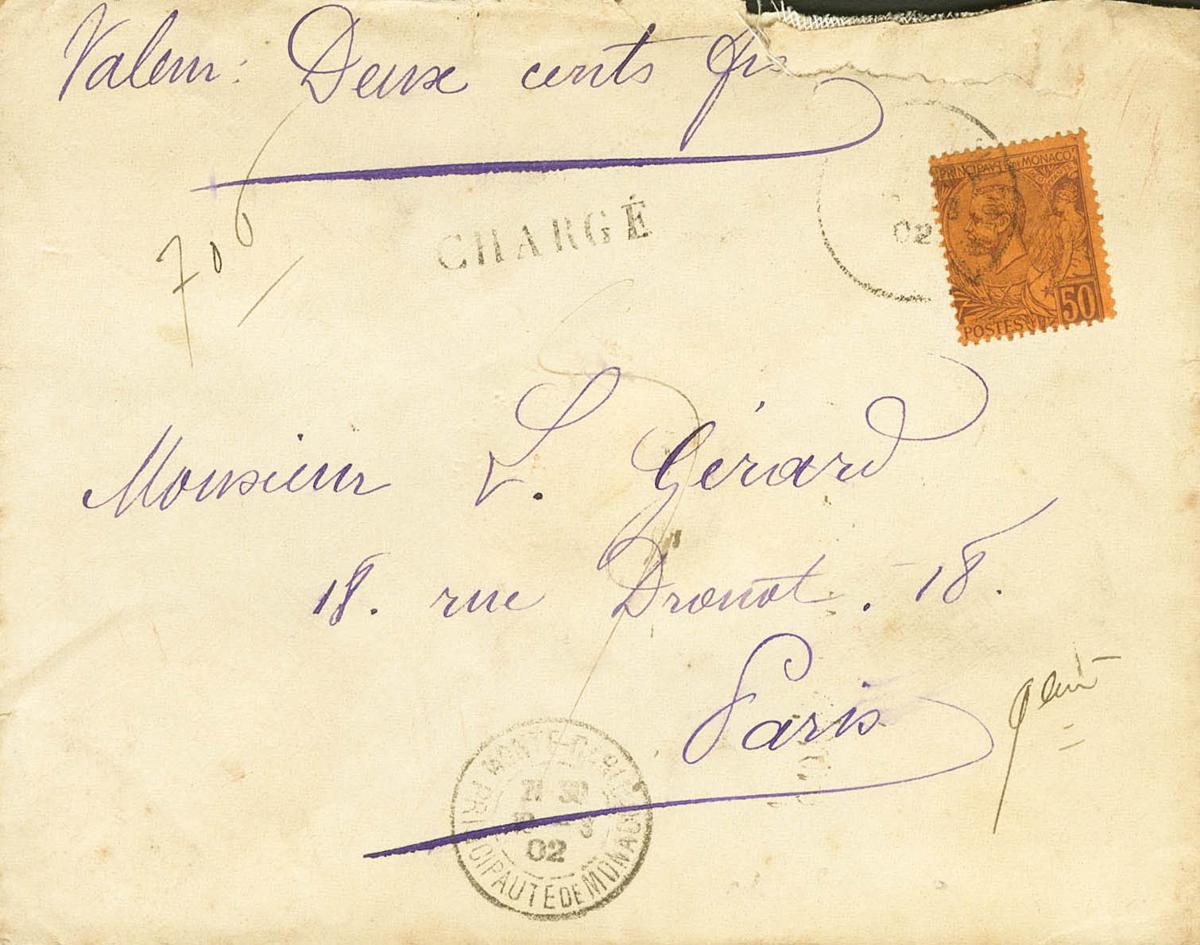 Valeur: Deux cents
CHARGÉ
02
PRINCIPAUTÉ DE MONACO
POSTES 50
Monsieur L. Gérard
18. rue Drouot. 18.
Paris
MONTE-CARLO
21 30
02
PRINCIPAUTÉ DE MONACO